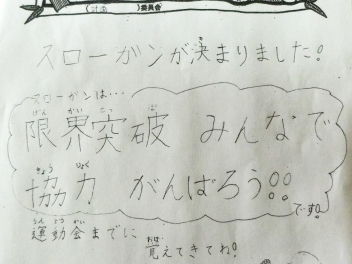 (計画 )委員会
スローガンが決まりました!
スローガンは…
限界突破 みんなで
協力 がんばろう!!
です!
運動会までに
覚えてきてね!